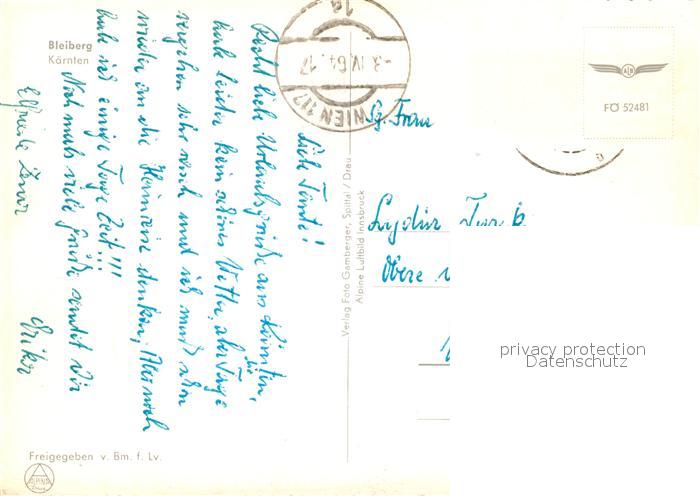 Bleiberg
Kärnten
Liebe Tante!
Recht liebe Urlaubsgrüße aus Kärnten,
habe leider kein schönes Wetter, aber die Tage
vergehen sehr rasch und ich muß schon
wieder an die Heimreise denken,
hab ich einige Tage Zeit!!!
Nochmals viele Grüße sendet Dir
Elfriede
Erika
WIEN 117
-3.IV.64.-17
1a
Sg. Frau
Obere
Verlag Foto Gamberger, Spittal / Drau
Alpine Luftbild Innsbruck
FÖ 52481
privacy protection
Datenschutz
Freigegeben v. Bm. f. Lv.